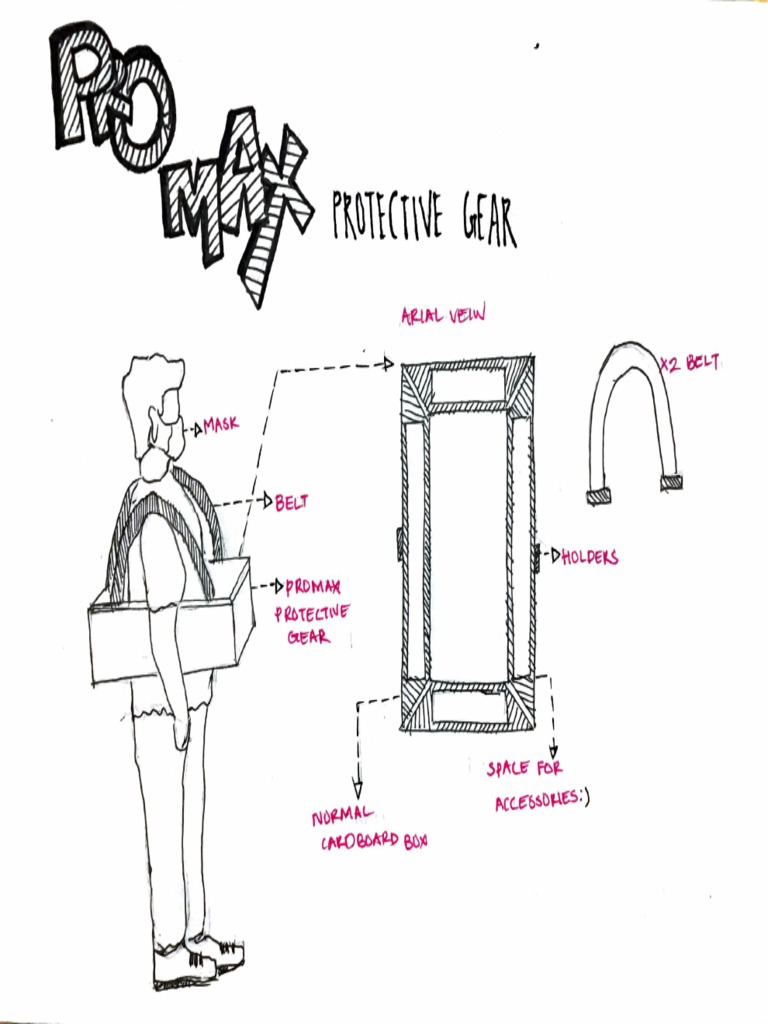 PRO
MAX
PROTECTIVE GEAR
ARIAL VEIW
X2 BELT
MASK
BELT
HOLDERS
PROMAX
PROTECTIVE
GEAR
SPACE FOR
ACCESSORIES:)
NORMAL
CARDBOARD BOX